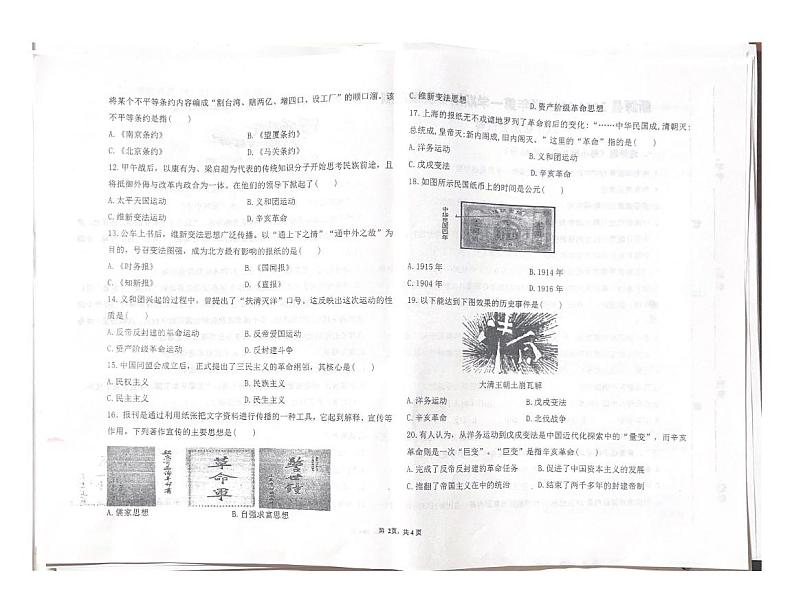 将某个不平等条约内容编成“割台湾、赔两亿、增四口、设工厂”的顺口溜。该
不平等条约是指( )
A.《南京条约》 B.《望厦条约》
C.《北京条约》 D.《马关条约》
12.甲午战后，以康有为、梁启超为代表的传统知识分子开始思考民族前途，且
将抵御外侮与改革内政合为一体。在他们的领导下掀起了( )
A.太平天国运动 B.义和团运动
C.维新变法运动 D.辛亥革命
13.公车上书后，维新变法思想广泛传播。以“通上下之情”“通中外之故”为
目的，号召变法图强，成为北方最有影响的报纸的是( )
A.《时务报》 B.《国闻报》
C.《知新报》 D.《直报》
14.义和团兴起的过程中，曾提出了“扶清灭洋”口号。这反映出这次运动的性
质是( )
A.反帝反封建的革命运动 B.反帝爱国运动
C.资产阶级革命运动 D.反封建斗争
15.中国同盟会成立后，正式提出了三民主义的革命纲领，其核心是( )
A.民权主义 B.民族主义
C.民生主义 D.民主主义
16.报刊是通过利用纸张把文字资料进行传播的一种工具，它起到解释、宣传等
作用。下列著作宣传的主要思想是( )
革命军
警世钟
A.儒家思想 B.自强求富思想
C.维新变法思想 D.资产阶级革命思想
17.上海的报纸无不戏谑地罗列了革命前后的变化：“……中华民国成，清朝灭：
总统成，皇帝灭：新内阁成，旧内阁灭。”这里的“革命”指的是( )
A.洋务运动 B.义和团运动
C.戊戌变法 D.辛亥革命
18.如图所示民国纸币上的时间是公元( )
中华民国四年
A.1915年 B.1914年
C.1904年 D.1916年
19.以下能达到下图效果的历史事件是( )
大清王朝土崩瓦解
A.洋务运动 B.戊戌变法
C.辛亥革命 D.北伐战争
20.有人认为，从洋务运动到戊戌变法是中国近代化探索中的“量变”，而辛亥
革命则是一次“巨变”。“巨变”是指辛亥革命( )
A.完成了反帝反封建的革命任务 B.促进了中国资本主义的发展
C.推翻了帝国主义在中的统治 D.结束了两千多年的封建帝制
第 2页，共 4 页